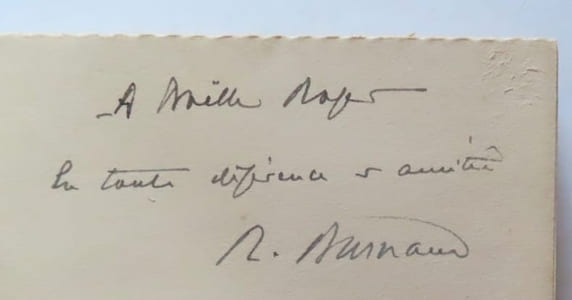 A Noëlle Roger
En toute déférence & amitié
R. Burnand